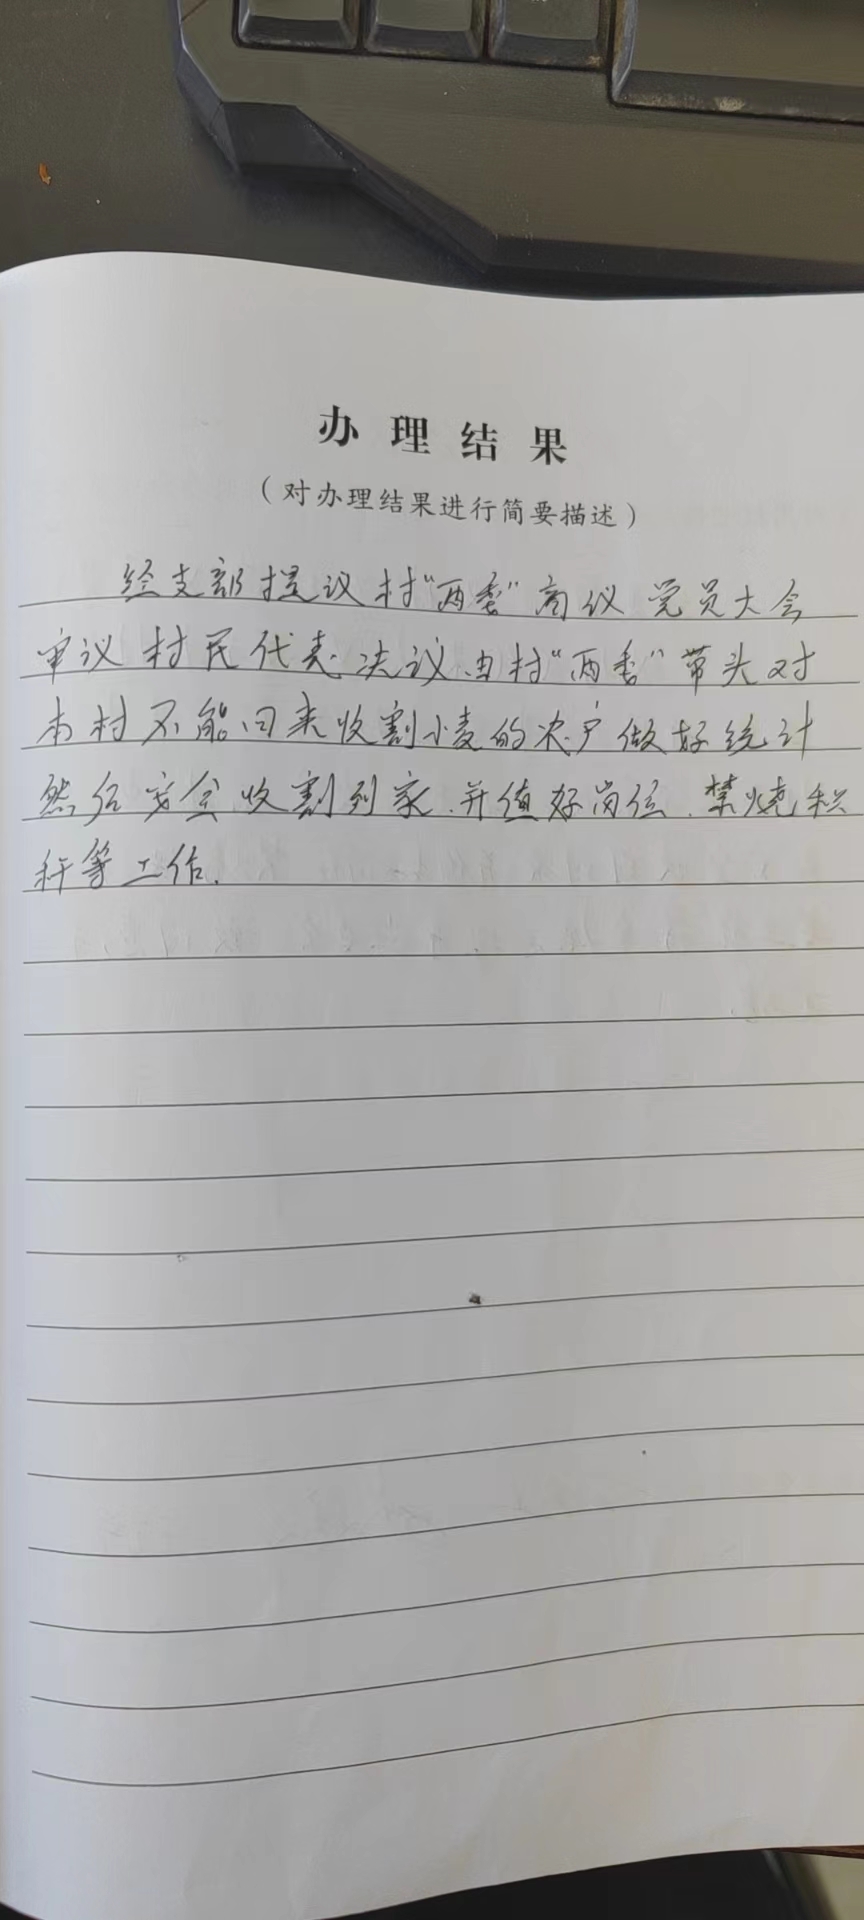 办理结果
（对办理结果进行简要描述）
经支部提议村“两委”商议党员大会
审议村民代表决议.由村“两委”带头对
本村不能回来收割小麦的农户做好统计
然后安全收割到家.并值好岗位.禁烧秸
秆等工作.